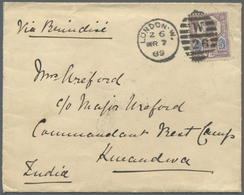 Via Brindisi
LONDON. W.
Z 6
MR 7
89
W
26
Mrs Ureford
c/o Major Ureford
Commandant Rest Camp
Khandwa
India